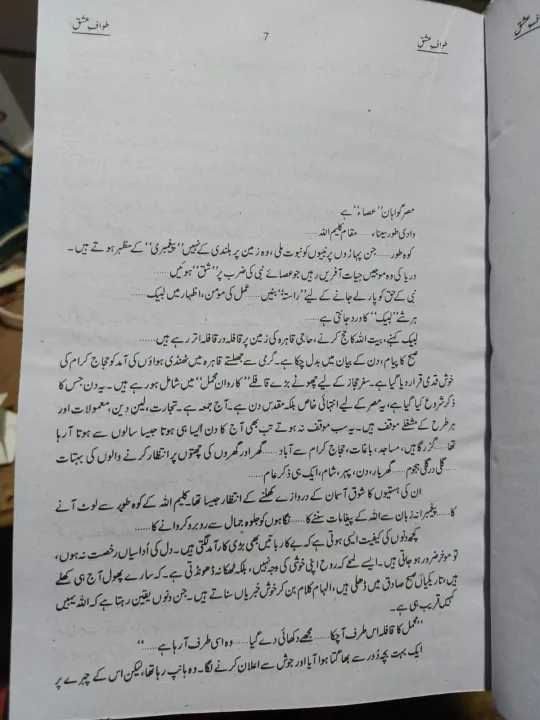 طوافِ عشق
7
طوافِ عشق
مصر گواہان ’’عصاء‘‘ ہے
وادی طور سیناء،...... مقام کلیم اللہ......
کوہ طور...... جن پہاڑوں پر نبیوں کو نبوت ملی، وہ زمین پر بلندی کے نہیں ’’پیغمبری‘‘ کے مظہر ہوتے ہیں۔
دریا کی وہ موجیں حیات آفریں رہیں جو عصائے نبی کی ضرب پر ’’شق‘‘ ہوئیں......
نبی کے حق کو پار لے جانے کے لیے ’’راستہ‘‘ بنیں...... عمل کی مؤمن، اظہار میں لبیک......
ہر شے ’’لبیک‘‘ کا ورد جانتی ہے......
لبیک کہنے، بیت اللہ کا حج کرنے، حاجی قاہرہ کی زمین پر قافلہ در قافلہ اتر رہے ہیں......
صبح کا پیام، دن کے بیان میں بدل چکا ہے۔ گرمی سے جھلستے قاہرہ میں ٹھنڈی ہواؤں کی آمد کو حجاج کرام کی
خوش قدمی قرار دیا گیا ہے۔ سفر حجاز کے لیے چھوٹے بڑے قافلے ’’کاروان محمل‘‘ میں شامل ہو رہے ہیں۔ یہ دن جس کا
ذکر شروع کیا گیا ہے، یہ مصر کے لیے انتہائی خاص بلکہ مقدس دن ہے۔ آج جمعہ ہے۔ تجارت، لین دین، معمولات اور
ہر طرح کے مشغلے موقف ہیں۔ یہ سب موقف نہ ہوتے تب بھی آج کا دن ایسا ہی ہوتا جیسا سالوں سے ہوتا آ رہا
تھا...... گزرگاہیں، مساجد، باغات، حجاج کرام سے آباد...... گھر اور گھروں کی چھتوں پر انتظار کرنے والوں کی بہتات
...... گلی در گلی ہجوم...... گھر بار، دن، پہر، شام، ایک ہی ذکر عام......
ان کی ہستیوں کا شوق آسمان کے دروازے کھلنے کے انتظار جیسا تھا۔ کلیم اللہ کے کوہ طور سے لوٹ آنے
کا...... پیغمبرانہ زبان سے اللہ کے پیغامات سننے کا...... نگاہوں کو جلوہ جمال سے رو برو کروانے کا......
کچھ دنوں کی کیفیت ایسی ہوتی ہے کہ بے کار باتیں بھی بڑی کارآمد لگتی ہیں۔ دل کی اُداسیاں رخصت نہ ہوں،
تو مؤخر ضرور ہو جاتی ہیں۔ ایسے لمحے کہ روح اپنی خوشی کی وجہ نہیں، بلکہ ٹھکانہ ڈھونڈتی ہے۔ کہ سارے پھول آج ہی کھلے
ہیں، تاریکیاں صبح صادق میں ڈھلی ہیں، الہام کلام بن کر خوش خبریاں سناتے ہیں۔ جن دنوں یقین رہتا ہے کہ اللہ یہیں
کہیں قریب ہی ہے۔
’’محمل کا قافلہ اس طرف آ چکا...... مجھے دکھائی دے گیا...... وہ اسی طرف آ رہا ہے......‘‘
ایک بہت بچہ دُور سے بھاگتا ہوا آیا اور جوش سے اعلان کرنے لگا۔ وہ ہانپ رہا تھا، لیکن اس کے چہرے پر
طوافِ عشق